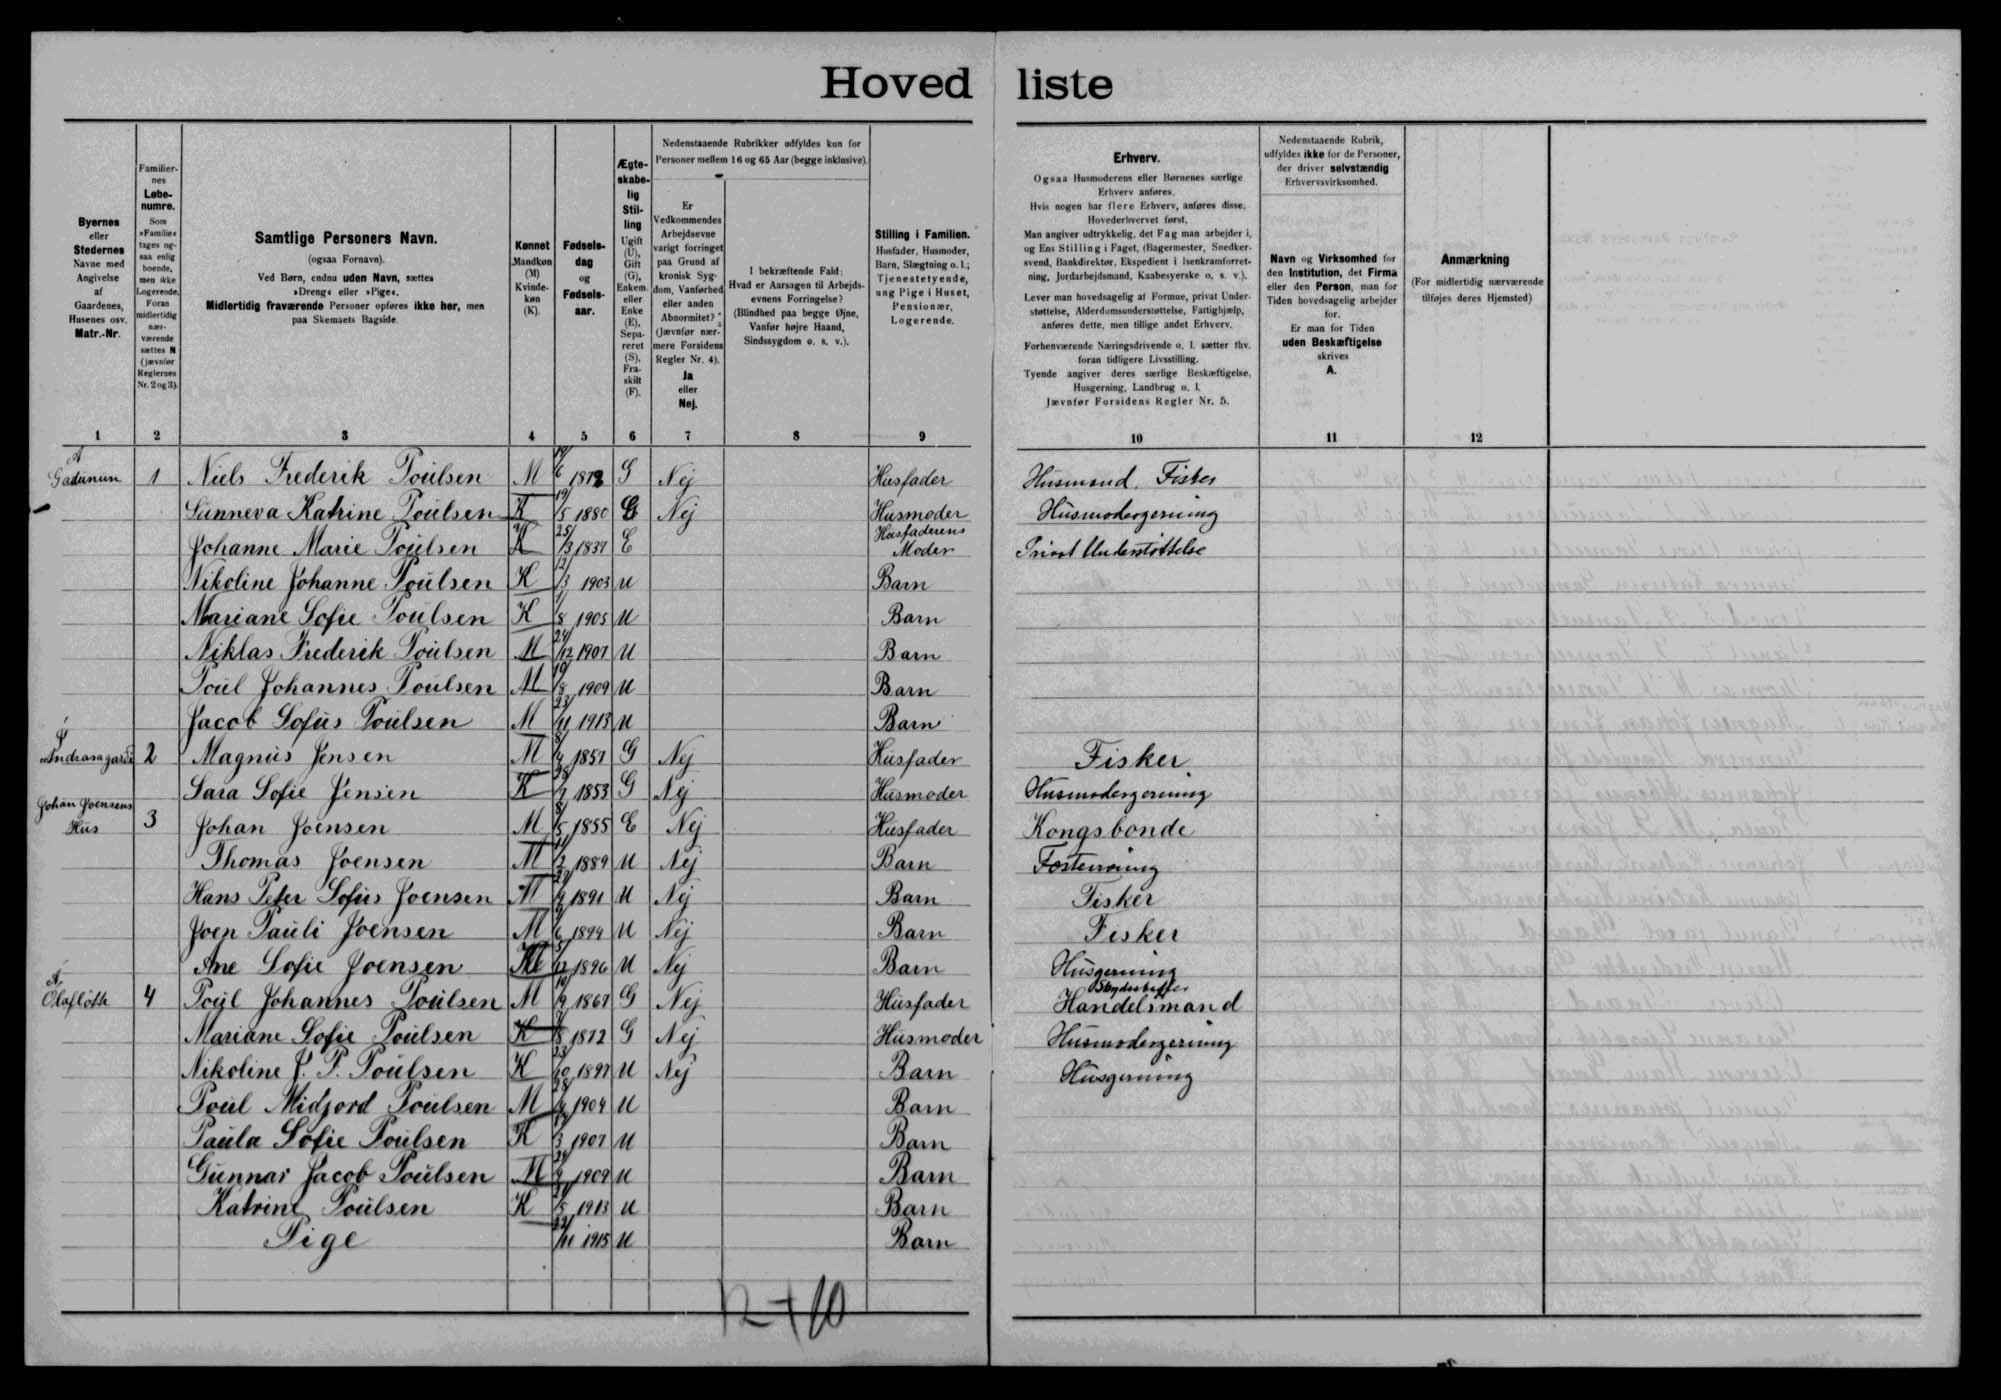 Hoved liste
Byernes
eller
Stedernes
Navne med
Angivelse
af
Gaardenes,
Husenes osv.
Matr.-Nr.
Familier-
nes
Løbe-
numre.
Som
»Familie«
tages og-
saa enlig
boende,
men ikke
Logerende.
Foran
midlertidig
nær-
værende
sættes N
(jævnfør
Reglernes
Nr. 2 og 3).
Samtlige Personers Navn.
(ogsaa Fornavn).
Ved Børn, endnu uden Navn, sættes
»Dreng« eller »Pige«.
Midlertidig fraværende Personer opføres ikke her, men
paa Skemaets Bagside.
Kønnet
Mandkøn
(M)
Kvinde-
køn
(K).
Fødsels-
dag
og
Fødsels-
aar.
Ægte-
skabe-
lig
Stil-
ling
Ugift
(U),
Gift
(G),
Enkem.
eller
Enke
(E),
Sepa-
reret
(S),
Fra-
skilt
(F).
Nedenstaaende Rubrikker udfyldes kun for
Personer mellem 16 og 65 Aar (begge inklusive).
Er
Vedkommendes
Arbejdsevne
varigt forringet
paa Grund af
kronisk Syg-
dom, Vanførhed
eller anden
Abnormitet?
(Jævnfør nær-
mere Forsidens
Regler Nr. 4).
Ja
eller
Nej.
I bekræftende Fald:
Hvad er Aarsagen til Arbejds-
evnens Forringelse?
(Blindhed paa begge Øjne,
Vanfør højre Haand,
Sindssygdom o. s. v.).
Stilling i Familien.
Husfader, Husmoder,
Barn, Slægtning o. l.;
Tjenestetyende,
ung Pige i Huset,
Pensionær,
Logerende.
Erhverv.
Ogsaa Husmoderens eller Børnenes særlige
Erhverv anføres.
Hvis nogen har flere Erhverv, anføres disse,
Hovederhvervet først.
Man angiver udtrykkelig, det Fag man arbejder i,
og Ens Stilling i Faget, (Bagermester, Snedker-
svend, Bankdirektør, Ekspedient i Isenkramforret-
ning, Jordarbejdsmand, Kaabesyerske o. s. v.).
Lever man hovedsagelig af Formue, privat Under-
støttelse, Alderdomsunderstøttelse, Fattighjælp,
anføres dette, men tillige andet Erhverv.
Forhenværende Næringsdrivende o. l. sætter thv.
foran tidligere Livsstilling.
Tyende angiver deres særlige Beskæftigelse,
Husgerning, Landbrug o. l.
Jævnfør Forsidens Regler Nr. 5.
Nedenstaaende Rubrik,
udfyldes ikke for de Personer,
der driver selvstændig
Erhvervsvirksomhed.
Navn og Virksomhed for
den Institution, det Firma
eller den Person, man for
Tiden hovedsagelig arbejder
for.
Er man for Tiden
uden Beskæftigelse
skrives
A.
Anmærkning
(For midlertidig nærværende
tilføjes deres Hjemsted)
1 2 3 4 5 6 7 8 9 10 11 12
Gadunum 1 Niels Frederik Poulsen M 6 1872 G Nej Husfader Husmand. Fisker
Sunneva Katrine Poulsen K 19/5 1880 G Nej Husmoder Husmodergerning
Johanne Marie Poulsen K 25/3 1837 E Husfaderens Moder Privat Understøttelse
Nikoline Johanne Poulsen K 12/3 1903 U Barn
Mariane Sofie Poulsen K 1/8 1905 U Barn
Niklas Frederik Poulsen M 24/12 1907 U Barn
Poul Johannes Poulsen M 19/8 1909 U Barn
Jacob Sofus Poulsen M 23/11 1913 U Barn
Andrasagardi 2 Magnus Jensen M 1857 G Nej Husfader Fisker
Sara Sofie Jensen K 1853 G Nej Husmoder Husmodergerning
Johan Joensens Hus 3 Johan Joensen M 8/5 1855 E Nej Husfader Kongsbonde
Thomas Joensen M 11/2 1889 U Nej Barn
Hans Peter Sofus Joensen M 1891 U Nej Barn Fisker
Joen Pauli Joensen M 6 1894 U Nej Barn Fisker
Ane Sofie Joensen K 5/12 1896 U Nej Barn Husgerning
Olafløtte 4 Poul Johannes Poulsen M 1867 G Nej Husfader Handelsmand
Mariane Sofie Poulsen K 8 1872 G Nej Husmoder Husmodergerning
Nikoline J. P. Poulsen K 23/10 1897 U Nej Barn Husgerning
Poul Midjord Poulsen M 1904 U Barn
Paula Sofie Poulsen K 3 1907 U Barn
Gunnar Jacob Poulsen M 1909 U Barn
Katrine Poulsen K 5 1913 U Barn
Pige 22/11 1915 U Barn
12+10